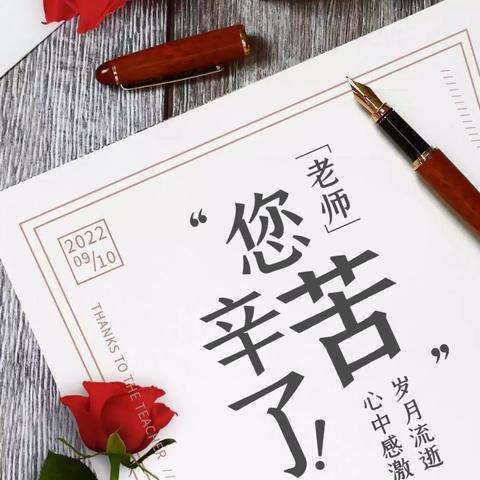 「老师」
“您
辛苦
了!”
岁月流逝
心中感激
2022
09/10
THANKS TO THE TEACHER //